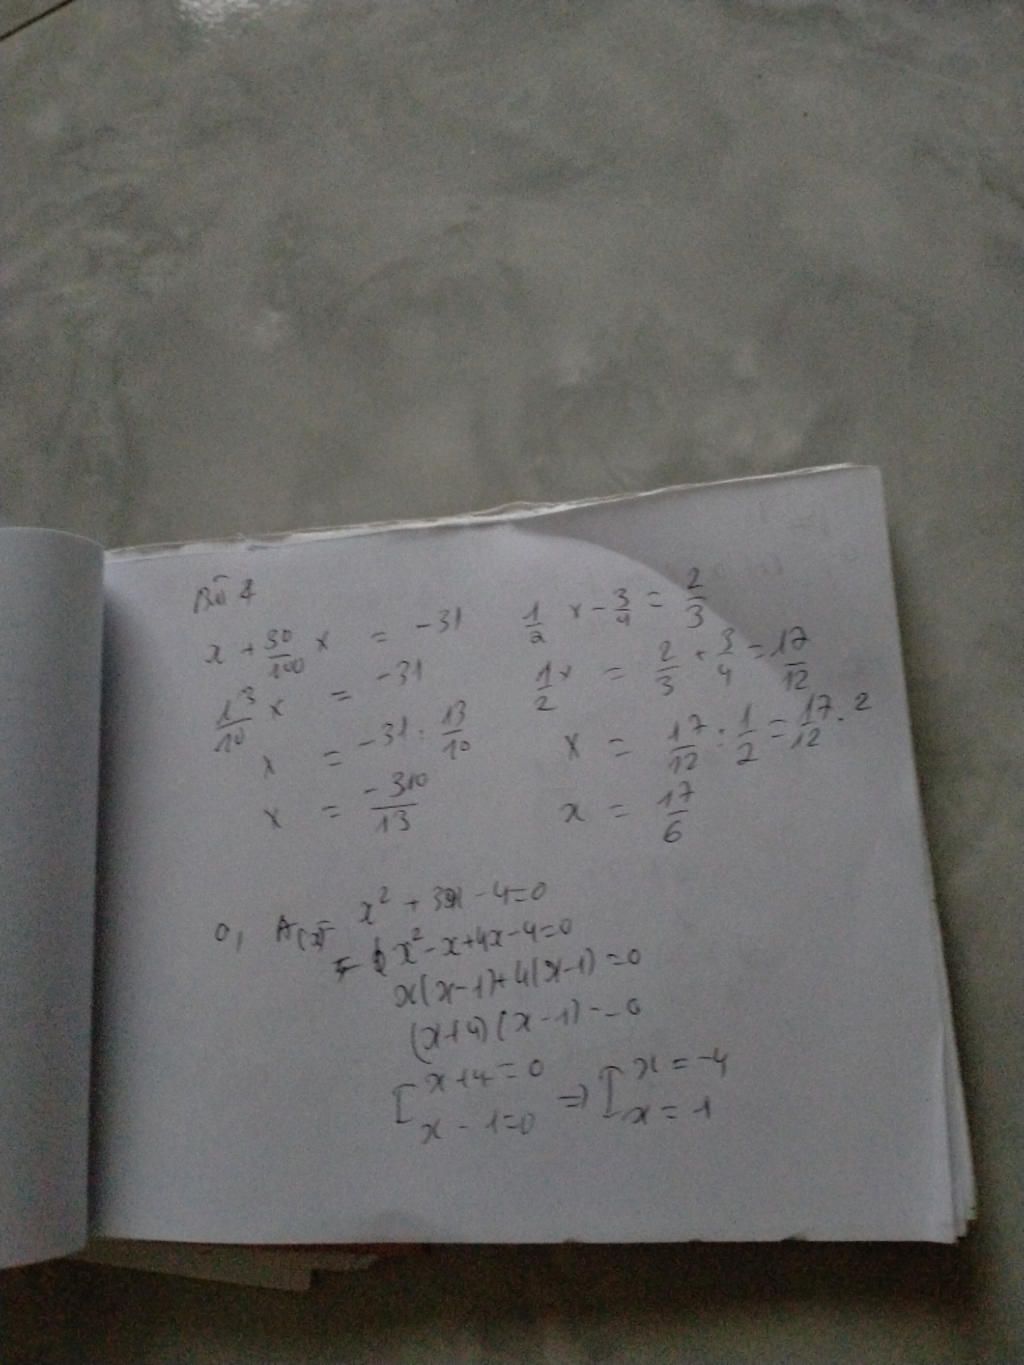 Bài 4
x + 30/100 x = -31
13/10 x = -31
x = -31 : 13/10
x = -310/13
1/2 x - 3/4 = 2/3
1/2 x = 2/3 + 3/4 = 17/12
x = 17/12 : 1/2 = 17/12 . 2
x = 17/6
A(x) = x² + 3x - 4 = 0
x² - x + 4x - 4 = 0
x(x-1) + 4(x-1) = 0
(x+4)(x-1) = 0
[x+4=0 ⇒ [x = -4
x - 1=0 x = 1